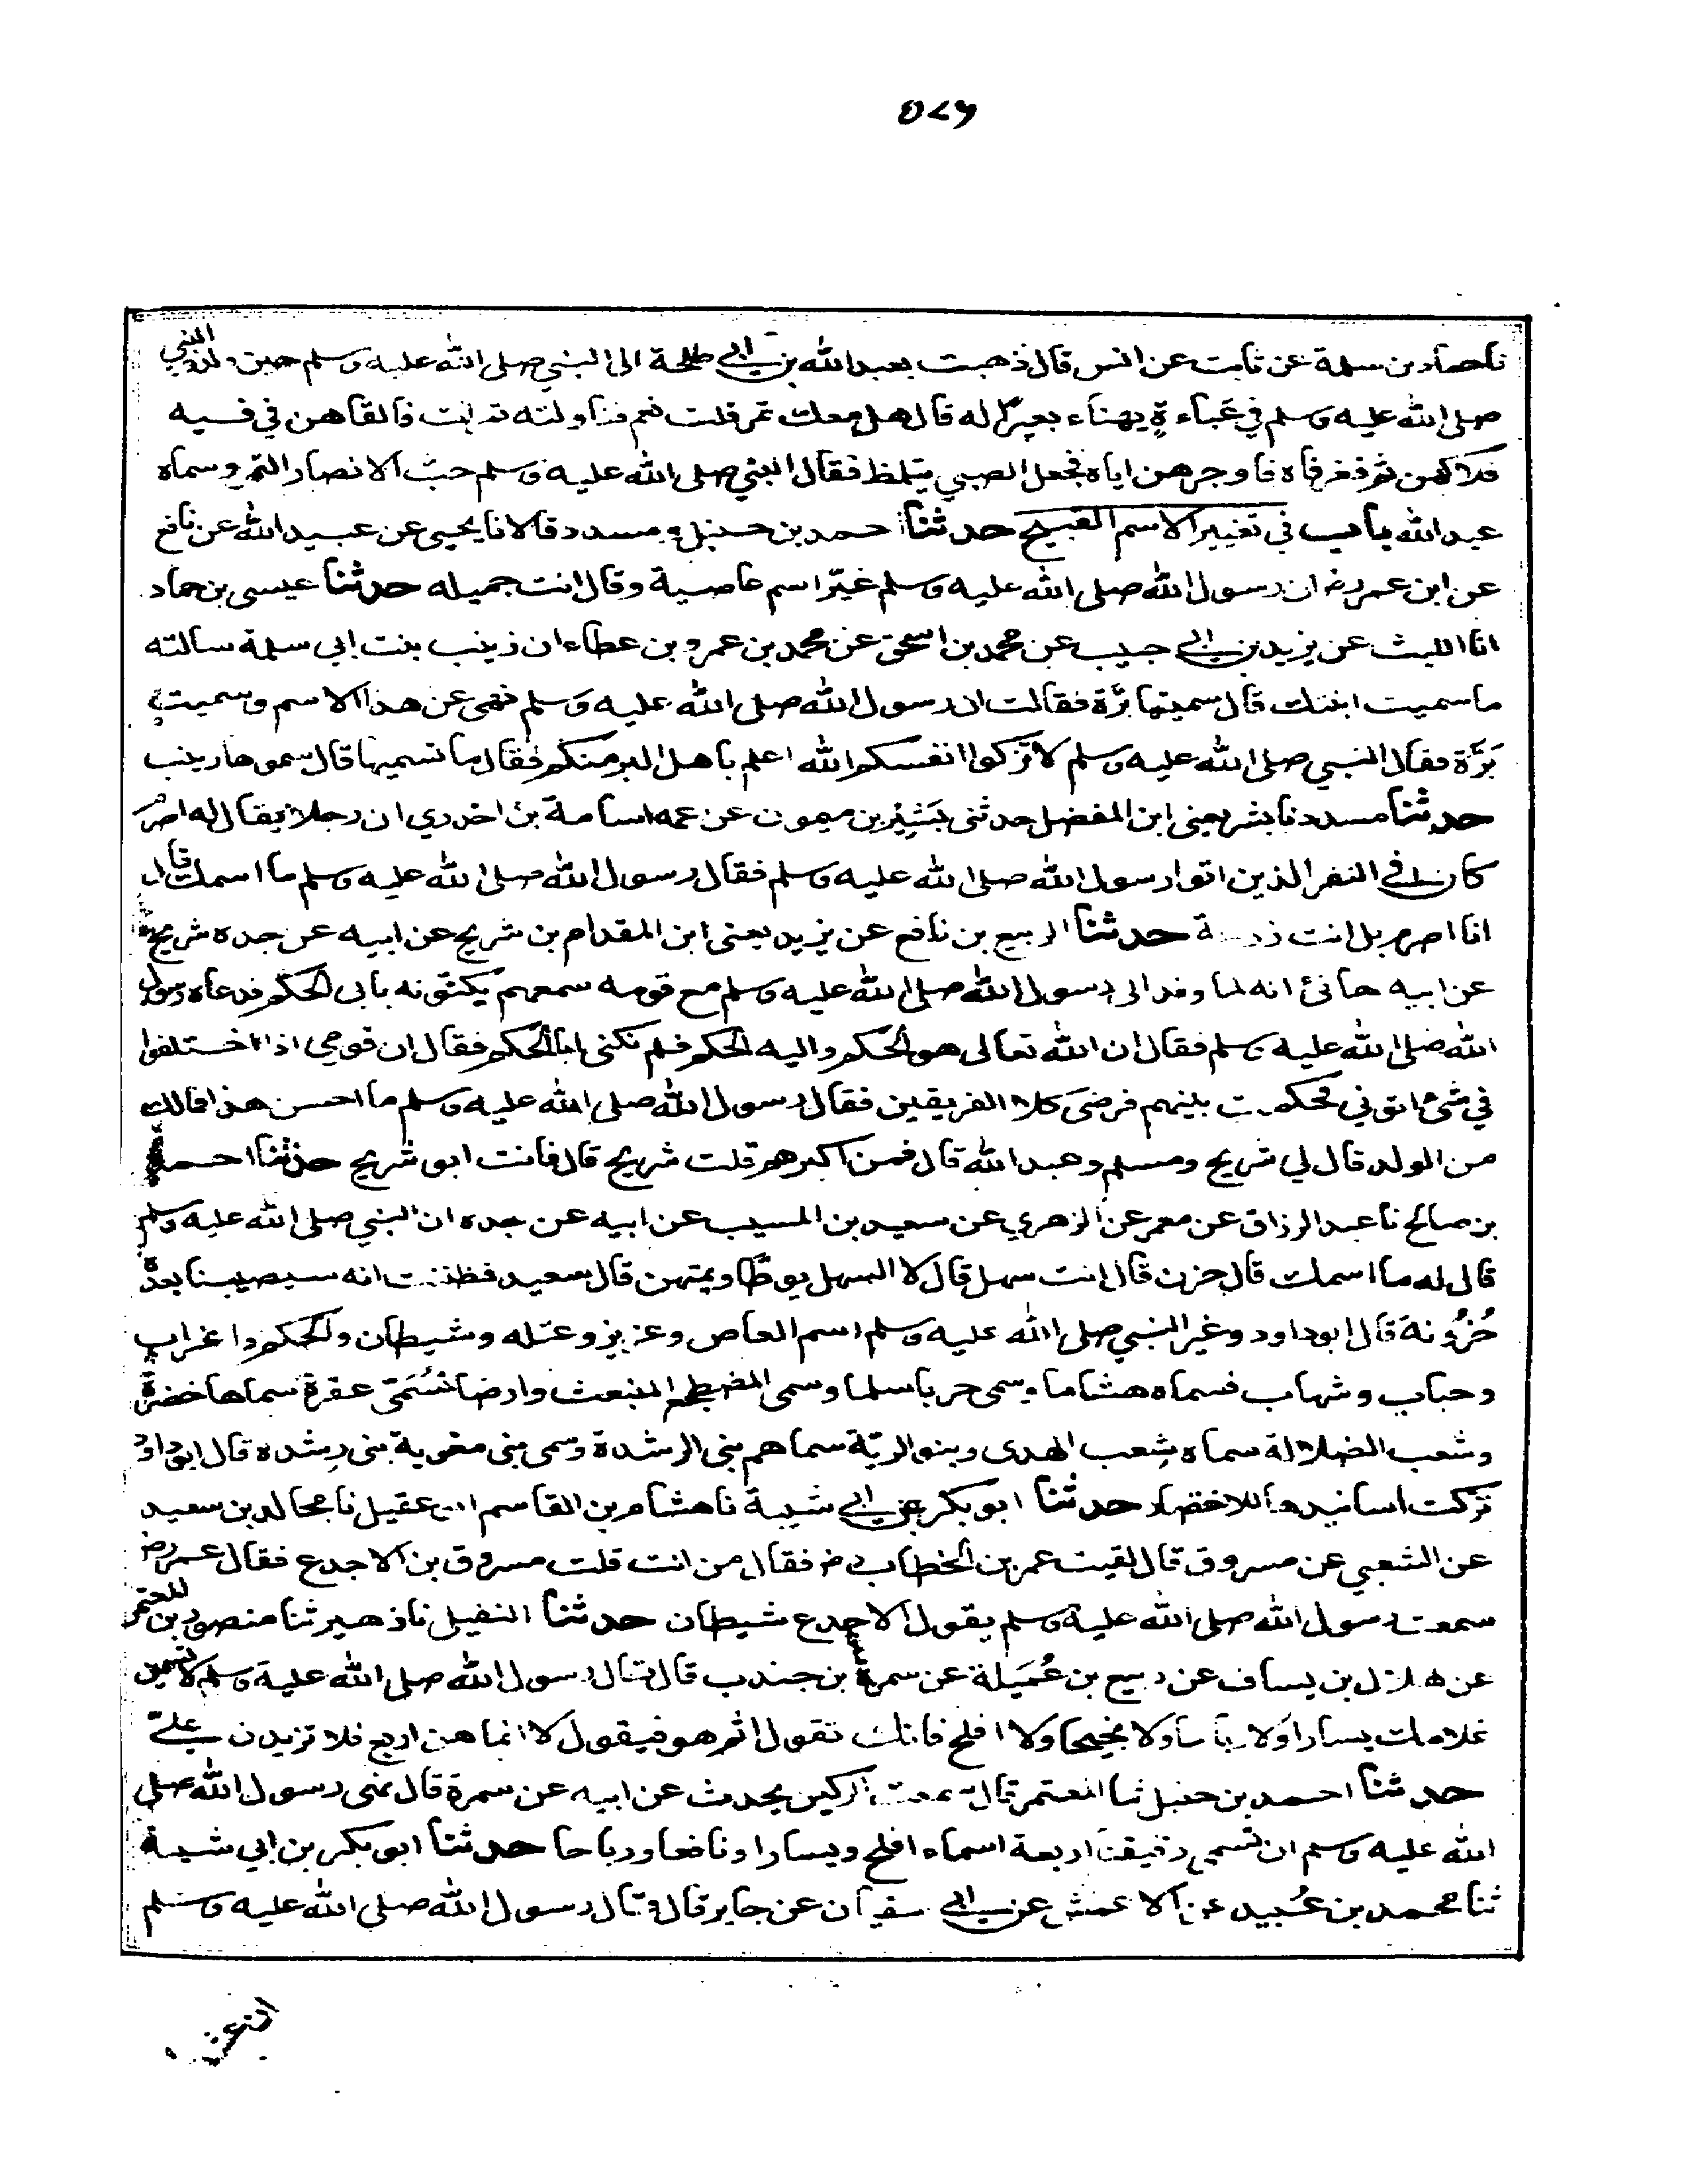 ٥٧٦
نا حماد بن سلمة عن ثابت عن انس قال ذهبت بعبد الله بن ابي طلحة الى النبي صلى الله عليه وسلم حين ولد والنبي
صلى الله عليه وسلم في عَباءةٍ يهناء بعيرًا له قال هل معك تمر قلت نعم فناولته تمرات فالقاهن في فيه
فلاكهن ثم فغر فاه فاوجرهن اياه فجعل الصبي يتلمظ فقال النبي صلى الله عليه وسلم حبّ الانصار التمر وسماه
عبد الله باب في تغيير الاسم القبيح حدثنا احمد بن حنبل ومسدد قالا نا يحيى عن عبيد الله عن نافع
عن ابن عمر رض ان رسول الله صلى الله عليه وسلم غيّر اسم عاصية وقال انت جميله حدثنا عيسى بن حماد
انا الليث عن يزيد بن ابي حبيب عن محمد بن اسحق عن محمد بن عمرو بن عطاء ان زينب بنت ابي سلمة سالته
ما سميت ابنتك قال سميتها برَّة فقالت ان رسول الله صلى الله عليه وسلم نهى عن هذا الاسم وسميت
بَرَّة فقال النبي صلى الله عليه وسلم لا تزكوا انفسكم الله اعلم باهل البر منكم فقال ما نسميها قال سموها زينب
حدثنا مسدد نا بشر يعني ابن المفضل حدثني بَشِيْر بن ميمون عن عمه اسامة بن اخدري ان رجلا يقال له اصرم
كان في النفر الذين اتوا رسول الله صلى الله عليه وسلم فقال رسول الله صلى الله عليه وسلم ما اسمك قال
انا اصرم بل انت زرعة حدثنا الربيع بن نافع عن يزيد يعني ابن المقدام بن شريح عن ابيه عن جده شريح
عن ابيه هانئ انه لما وفد الى رسول الله صلى الله عليه وسلم مع قومه سمعهم يكنّونه بابي الحكم فدعاه رسول
الله صلى الله عليه وسلم فقال ان الله تعالى هو الحكم واليه الحكم فلم تكنى ابا الحكم فقال ان قومي اذا اختلفوا
في شئ اتوني فحكمت بينهم فرضى كلا الفريقين فقال رسول الله صلى الله عليه وسلم ما احسن هذا فمالك
من الولد قال لي شريح ومسلم وعبد الله قال فمن اكبرهم قلت شريح قال فانت ابو شريح حدثنا احمد
بن صالح نا عبد الرزاق عن معمر عن الزهري عن سعيد بن المسيب عن ابيه عن جده ان النبي صلى الله عليه وسلم
قال له ما اسمك قال حزن قال انت سهل قال لا السهل يوطَّا ويمتهن قال سعيد فظننت انه سيصيبنا بعده
حُزُونة قال ابو داود وغير النبي صلى الله عليه وسلم اسم العاص وعزيز وعتله وشيطان والحكم وا غراب
وحباب وشهاب فسماه هشاما وسمى حربا سلما وسمى المضطجع المنبعث وارضا تُسَمّى عقرة سماها خضرة
وشعب الضلالة سماه شِعب الهدى وبنو الزنية سماهم بني الرشدة وسمى بني مغوية بني رِشدة قال ابو داود
تركت اسانيدها للاختصار حدثنا ابو بكر بن ابي شيبة نا هشام بن القاسم ابو عقيل نا مجالد بن سعيد
عن الشعبي عن مسروق قال لقيت عمر بن الخطاب رض فقال من انت قلت مسروق بن الاجدع فقال عمر رض
سمعت رسول الله صلى الله عليه وسلم يقول الاجدع شيطان حدثنا النفيلي نا زهير ثنا منصور بن المعتمر
عن هلال بن يساف عن ربيع بن عُمَيلة عن سمرة بن جندب قال قال رسول الله صلى الله عليه وسلم لا تسمين
غلامك يسارا ولا رباحا ولا نجيحا ولا افلح فانك تقول اثم هو فيقول لا انما هن اربع فلا تزيدن عليّ
حدثنا احمد بن حنبل ثنا المعتمر قال سمعت الركين يحدث عن ابيه عن سمرة قال نهى رسول الله صلى
الله عليه وسلم ان نسمي رقيقنا اربعة اسماء افلح ويسارا ونافعا ورباحا حدثنا ابو بكر بن ابي شيبة
ثنا محمد بن عُبيد عن الاعمش عن ابي سفيان عن جابر قال قال رسول الله صلى الله عليه وسلم